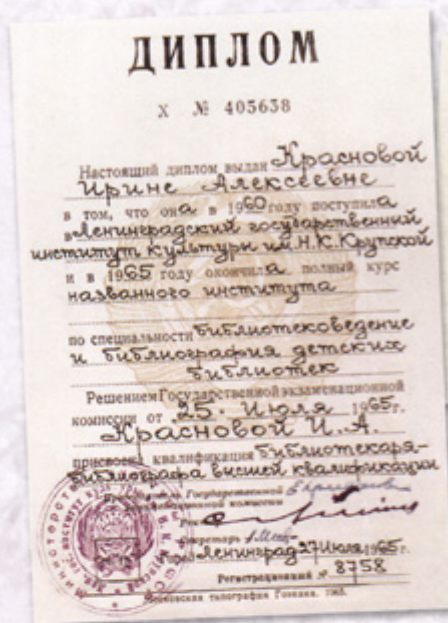 ДИПЛОМ
X № 405638
Настоящий диплом выдан Красновой
Ирине Алексеевне
в том, что она в 1960 году поступила
в Ленинградский государственный
институт культуры им. Н.К. Крупской
и в 1965 году окончила полный курс
названного института
по специальности библиотековедение
и библиография детских
библиотек
Решением Государственной экзаменационной
комиссии от 25. Июля 1965г.
Красновой И. А.
присвоена квалификация библиотекаря-
библиографа высшей квалификации
Государственной
комиссии
Секретарь
Ленинград 27 Июля 1965г.
Регистрационный № 8758
Московская типография Гознака. 1965.